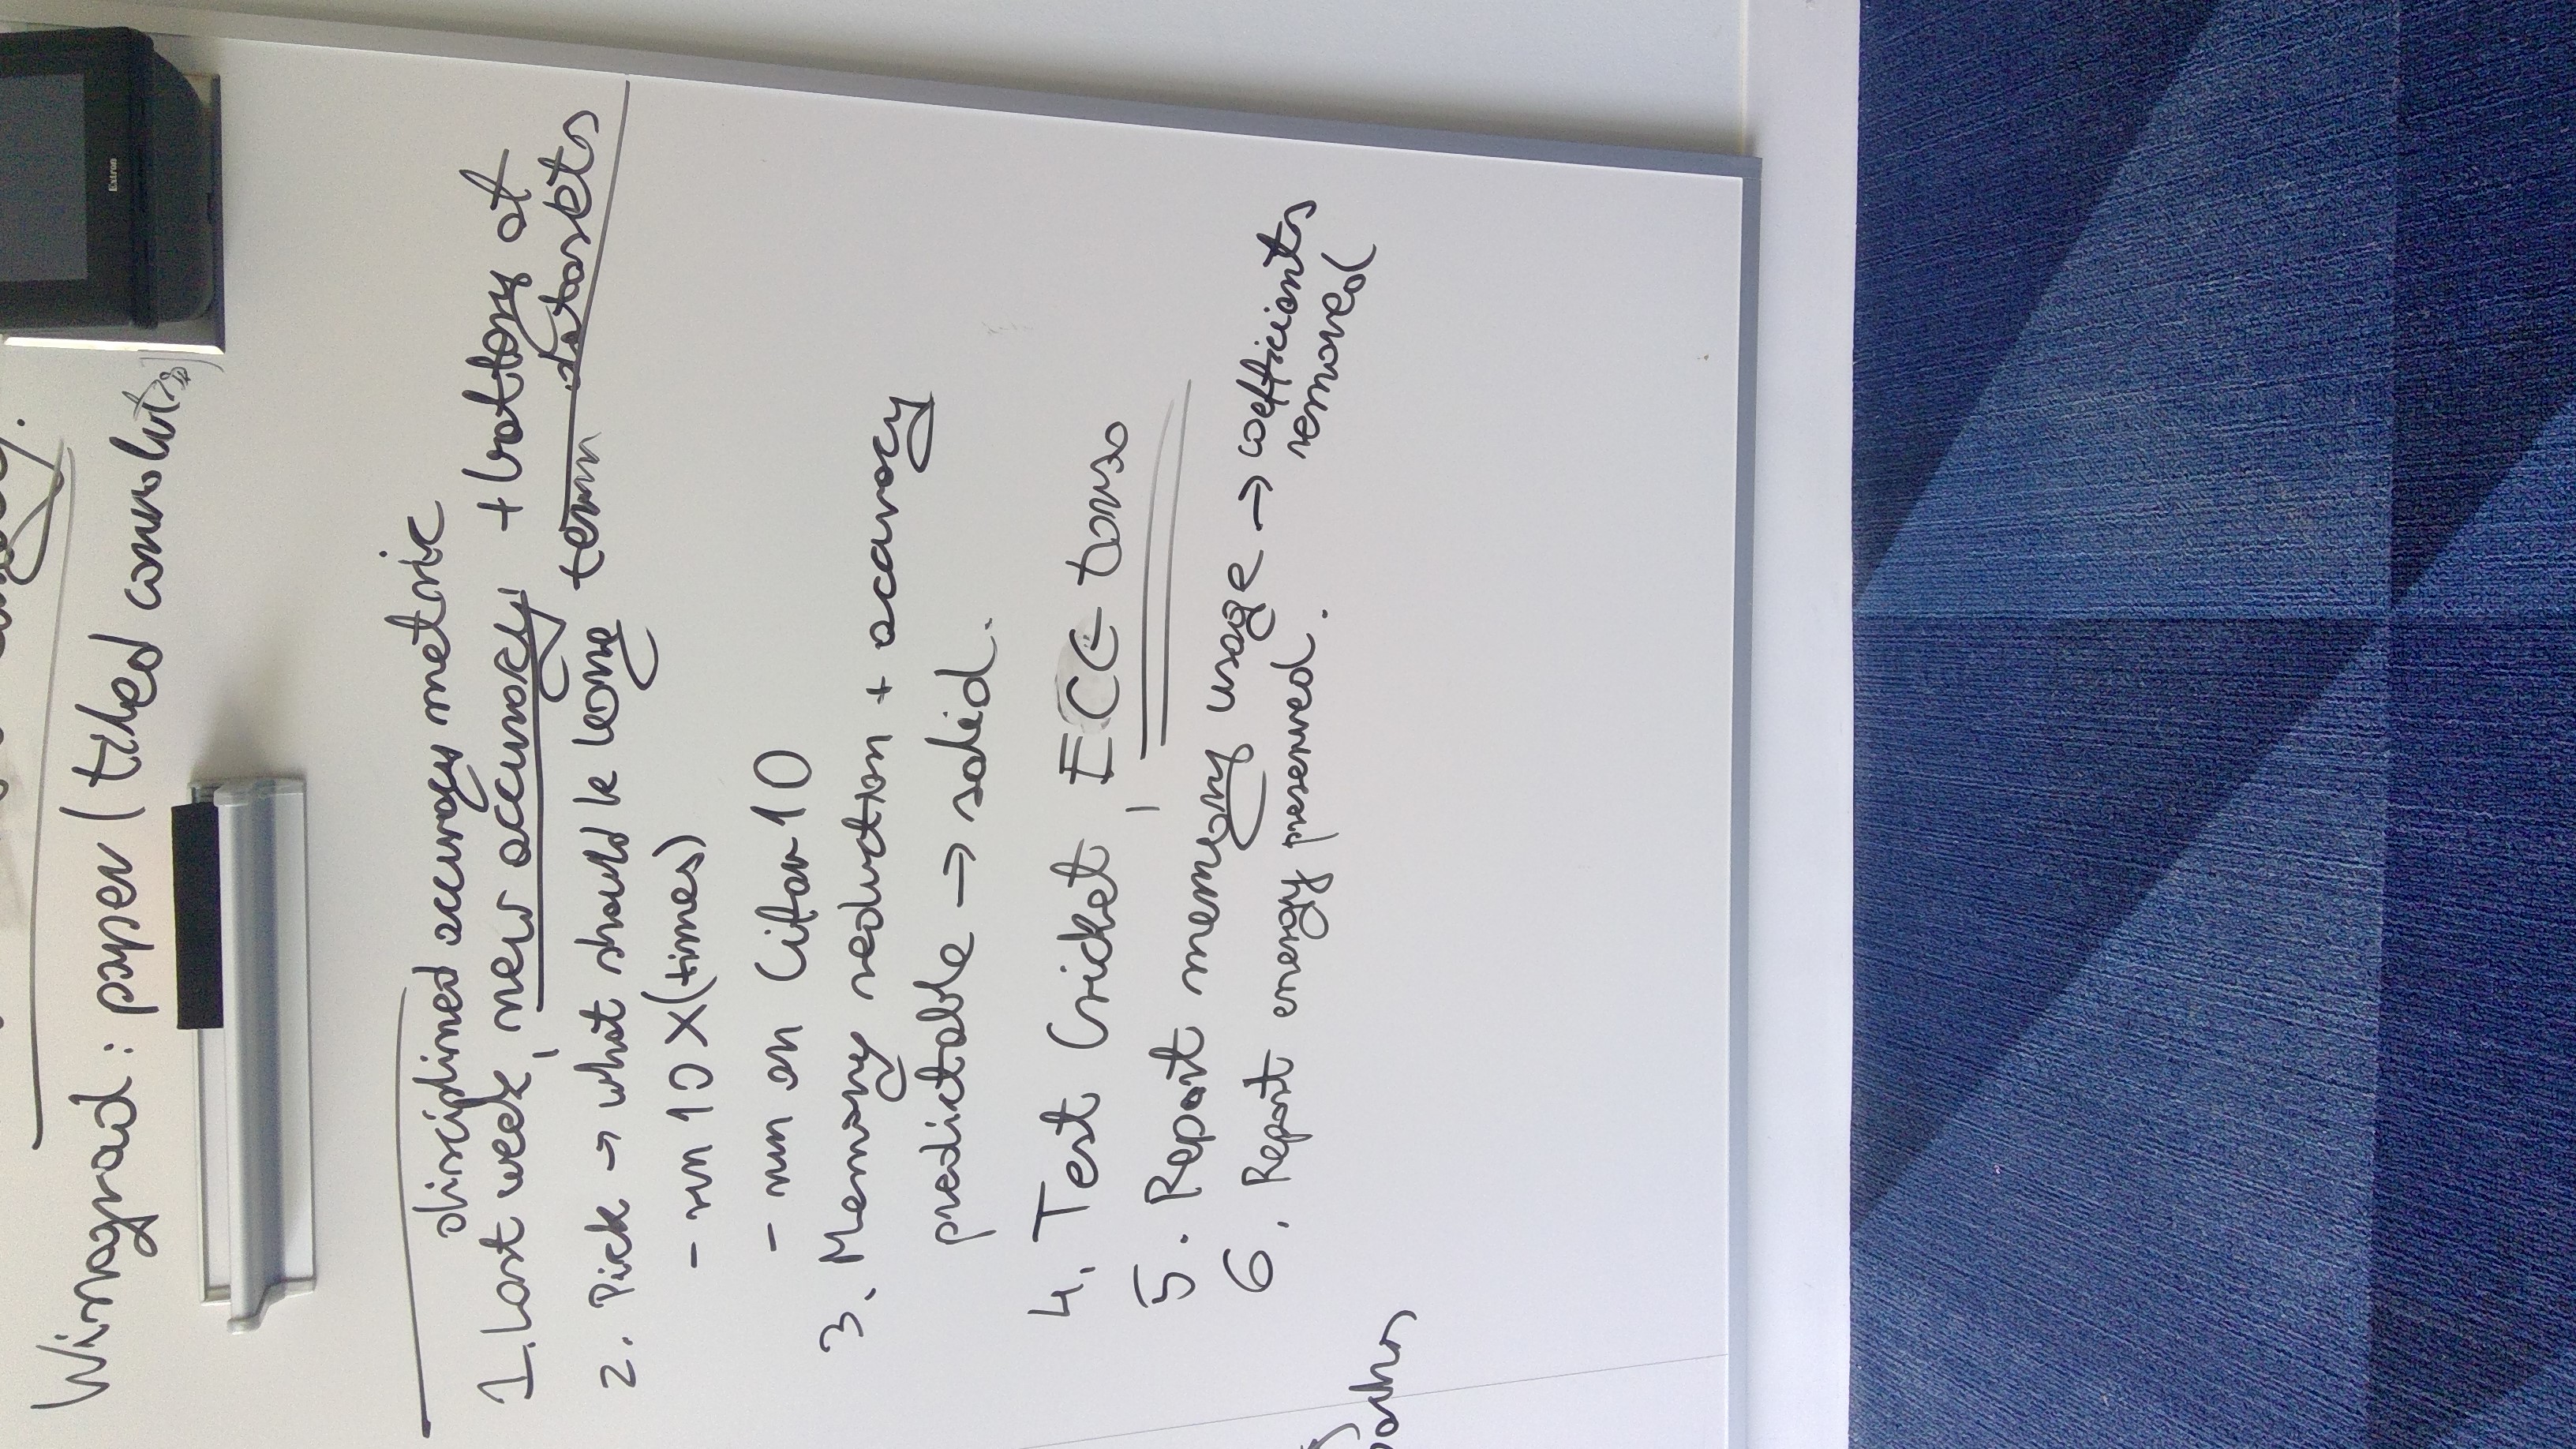 Winograd: paper (tiled convolutions)
Extron
disciplined accuracy metric
1. Last week, new accuracy! + battery of datasets
2. Pick → what should be long term
- run 10 X (times)
- run on Cifar 10
3. Memory reduction + accuracy
predictable → solid.
4. Test Cricket, ECG torso
5. Report memory usage → coefficients
removed
6. Report energy preserved.